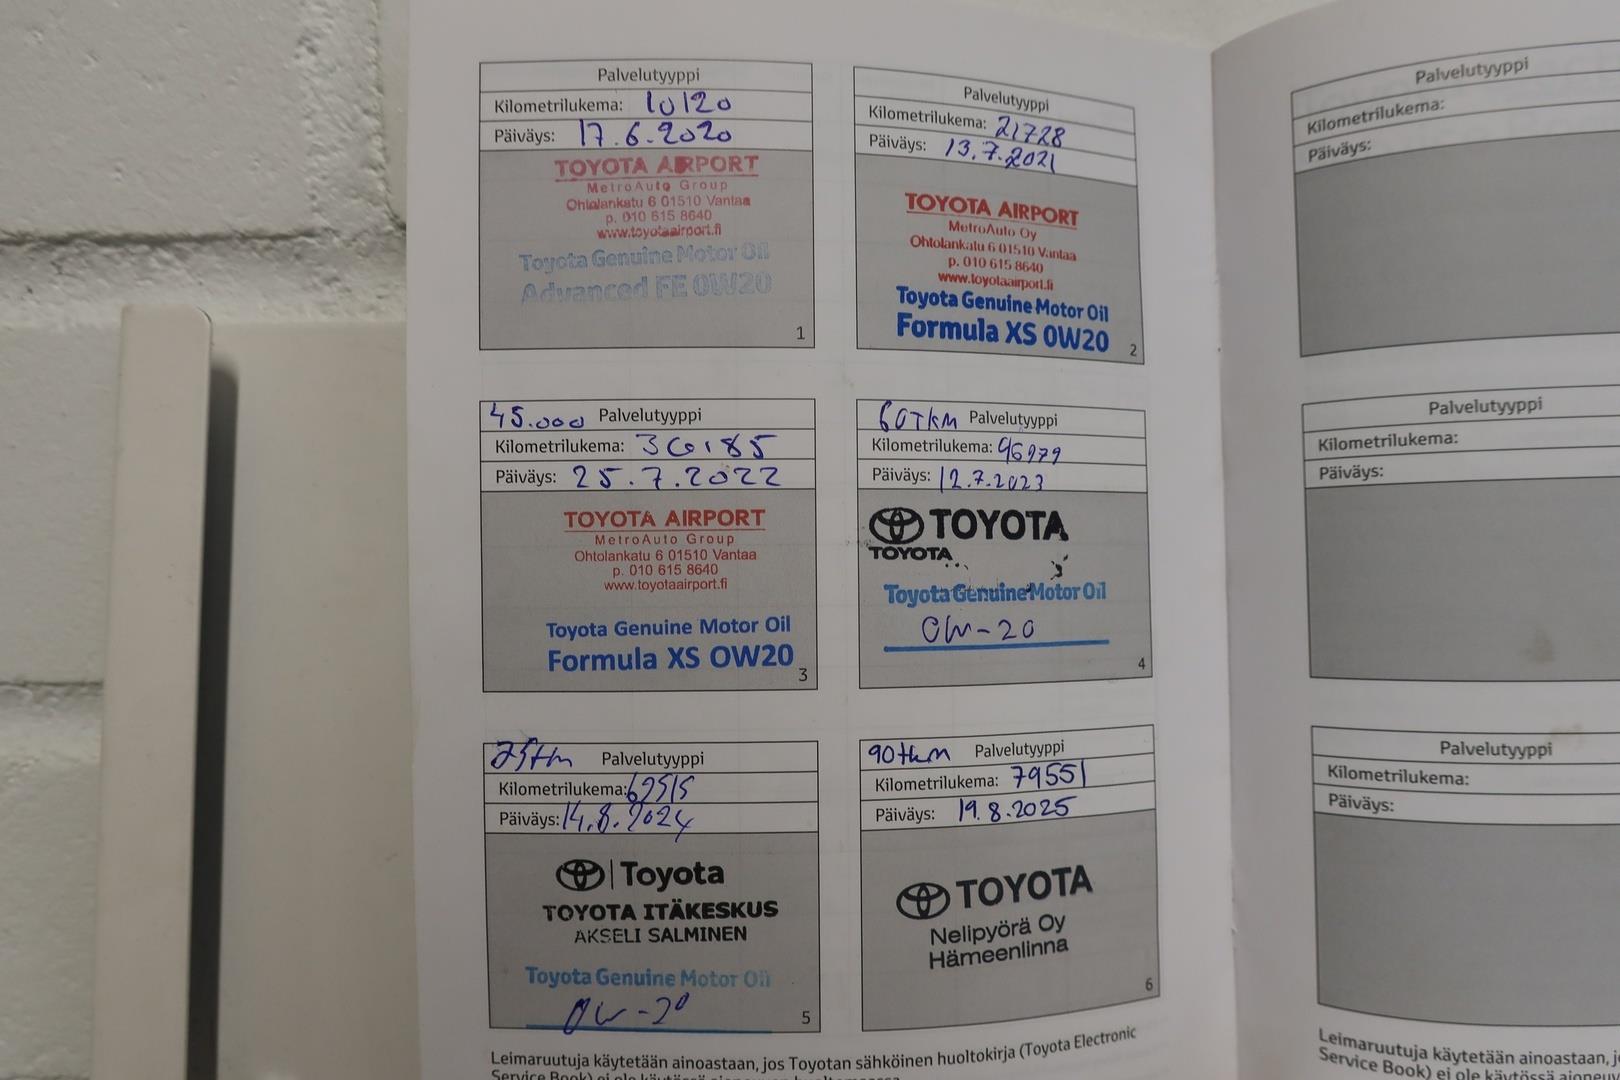 Palvelutyyppi
Kilometrilukema: 10120
Päiväys: 17.6.2020
TOYOTA AIRPORT
MetroAuto Group
Ohtolankatu 6 01510 Vantaa
p. 010 615 8640
www.toyotaairport.fi
Toyota Genuine Motor Oil
Advanced FE 0W20
1
Palvelutyyppi
Kilometrilukema: 21728
Päiväys: 13.7.2021
TOYOTA AIRPORT
MetroAuto Oy
Ohtolankatu 6 01510 Vantaa
p. 010 615 8640
www.toyotaairport.fi
Toyota Genuine Motor Oil
Formula XS 0W20
2
45.000 Palvelutyyppi
Kilometrilukema: 36185
Päiväys: 25.7.2022
TOYOTA AIRPORT
MetroAuto Group
Ohtolankatu 6 01510 Vantaa
p. 010 615 8640
www.toyotaairport.fi
Toyota Genuine Motor Oil
Formula XS 0W20
3
60TKM Palvelutyyppi
Kilometrilukema:
Päiväys: 12.7.2023
TOYOTA
TOYOTA
Toyota Genuine Motor Oil
0W-20
4
75tkm Palvelutyyppi
Kilometrilukema: 62515
Päiväys: 14.8.2024
Toyota
TOYOTA ITÄKESKUS
AKSELI SALMINEN
Toyota Genuine Motor Oil
0W-20
5
90tkm Palvelutyyppi
Kilometrilukema: 79551
Päiväys: 19.8.2025
TOYOTA
Nelipyörä Oy
Hämeenlinna
6
Leimaruutuja käytetään ainoastaan, jos Toyotan sähköinen huoltokirja (Toyota Electronic
Service Book) ei ole käytössä
Palvelutyyppi
Kilometrilukema:
Päiväys:
Palvelutyyppi
Kilometrilukema:
Päiväys:
Palvelutyyppi
Kilometrilukema:
Päiväys:
Leimaruutuja käytetään ainoastaan,
Service Book) ei ole käytössä